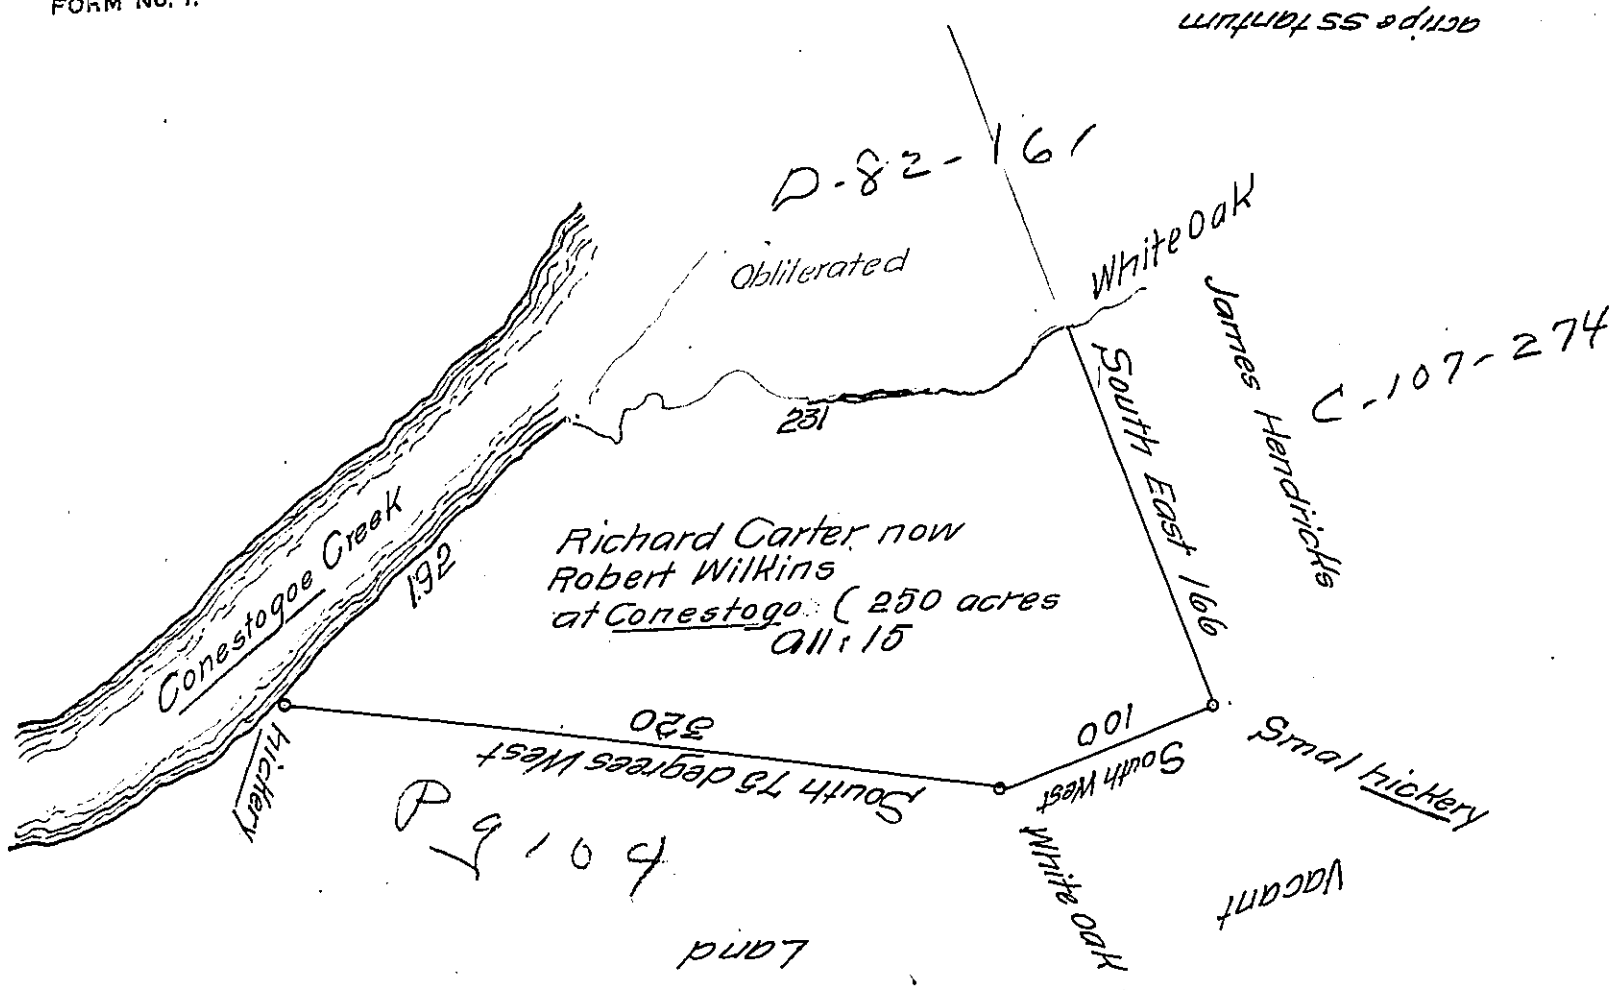 FORM NO. 1.
acripe ss tantum
D-82-161
Obliterated
White Oak
James Hendricks
C-107-274
South East 166
231
Conestogoe Creek
192
Richard Carter now
Robert Wilkins
at Conestogo (250 acres
all: 15
320
South 75 degrees West
100
South West
Smal hickery
hickery
White Oak
Vacant
Land